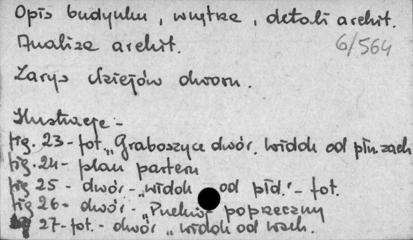 Opis budynku, wnętrza, detali archit.
Analiza archit.
6/564
Zarys dziejów dworu.
Ilustracje -
fig. 23 - fot. „Graboszyce dwór. widok od płn. zach
fig. 24 - plan parteru
fig 25 - dwór - „widok od płd." - fot.
fig 26 - dwór - „Przekrój poprzeczny
27 - fot. - dwór „widok od wsch.